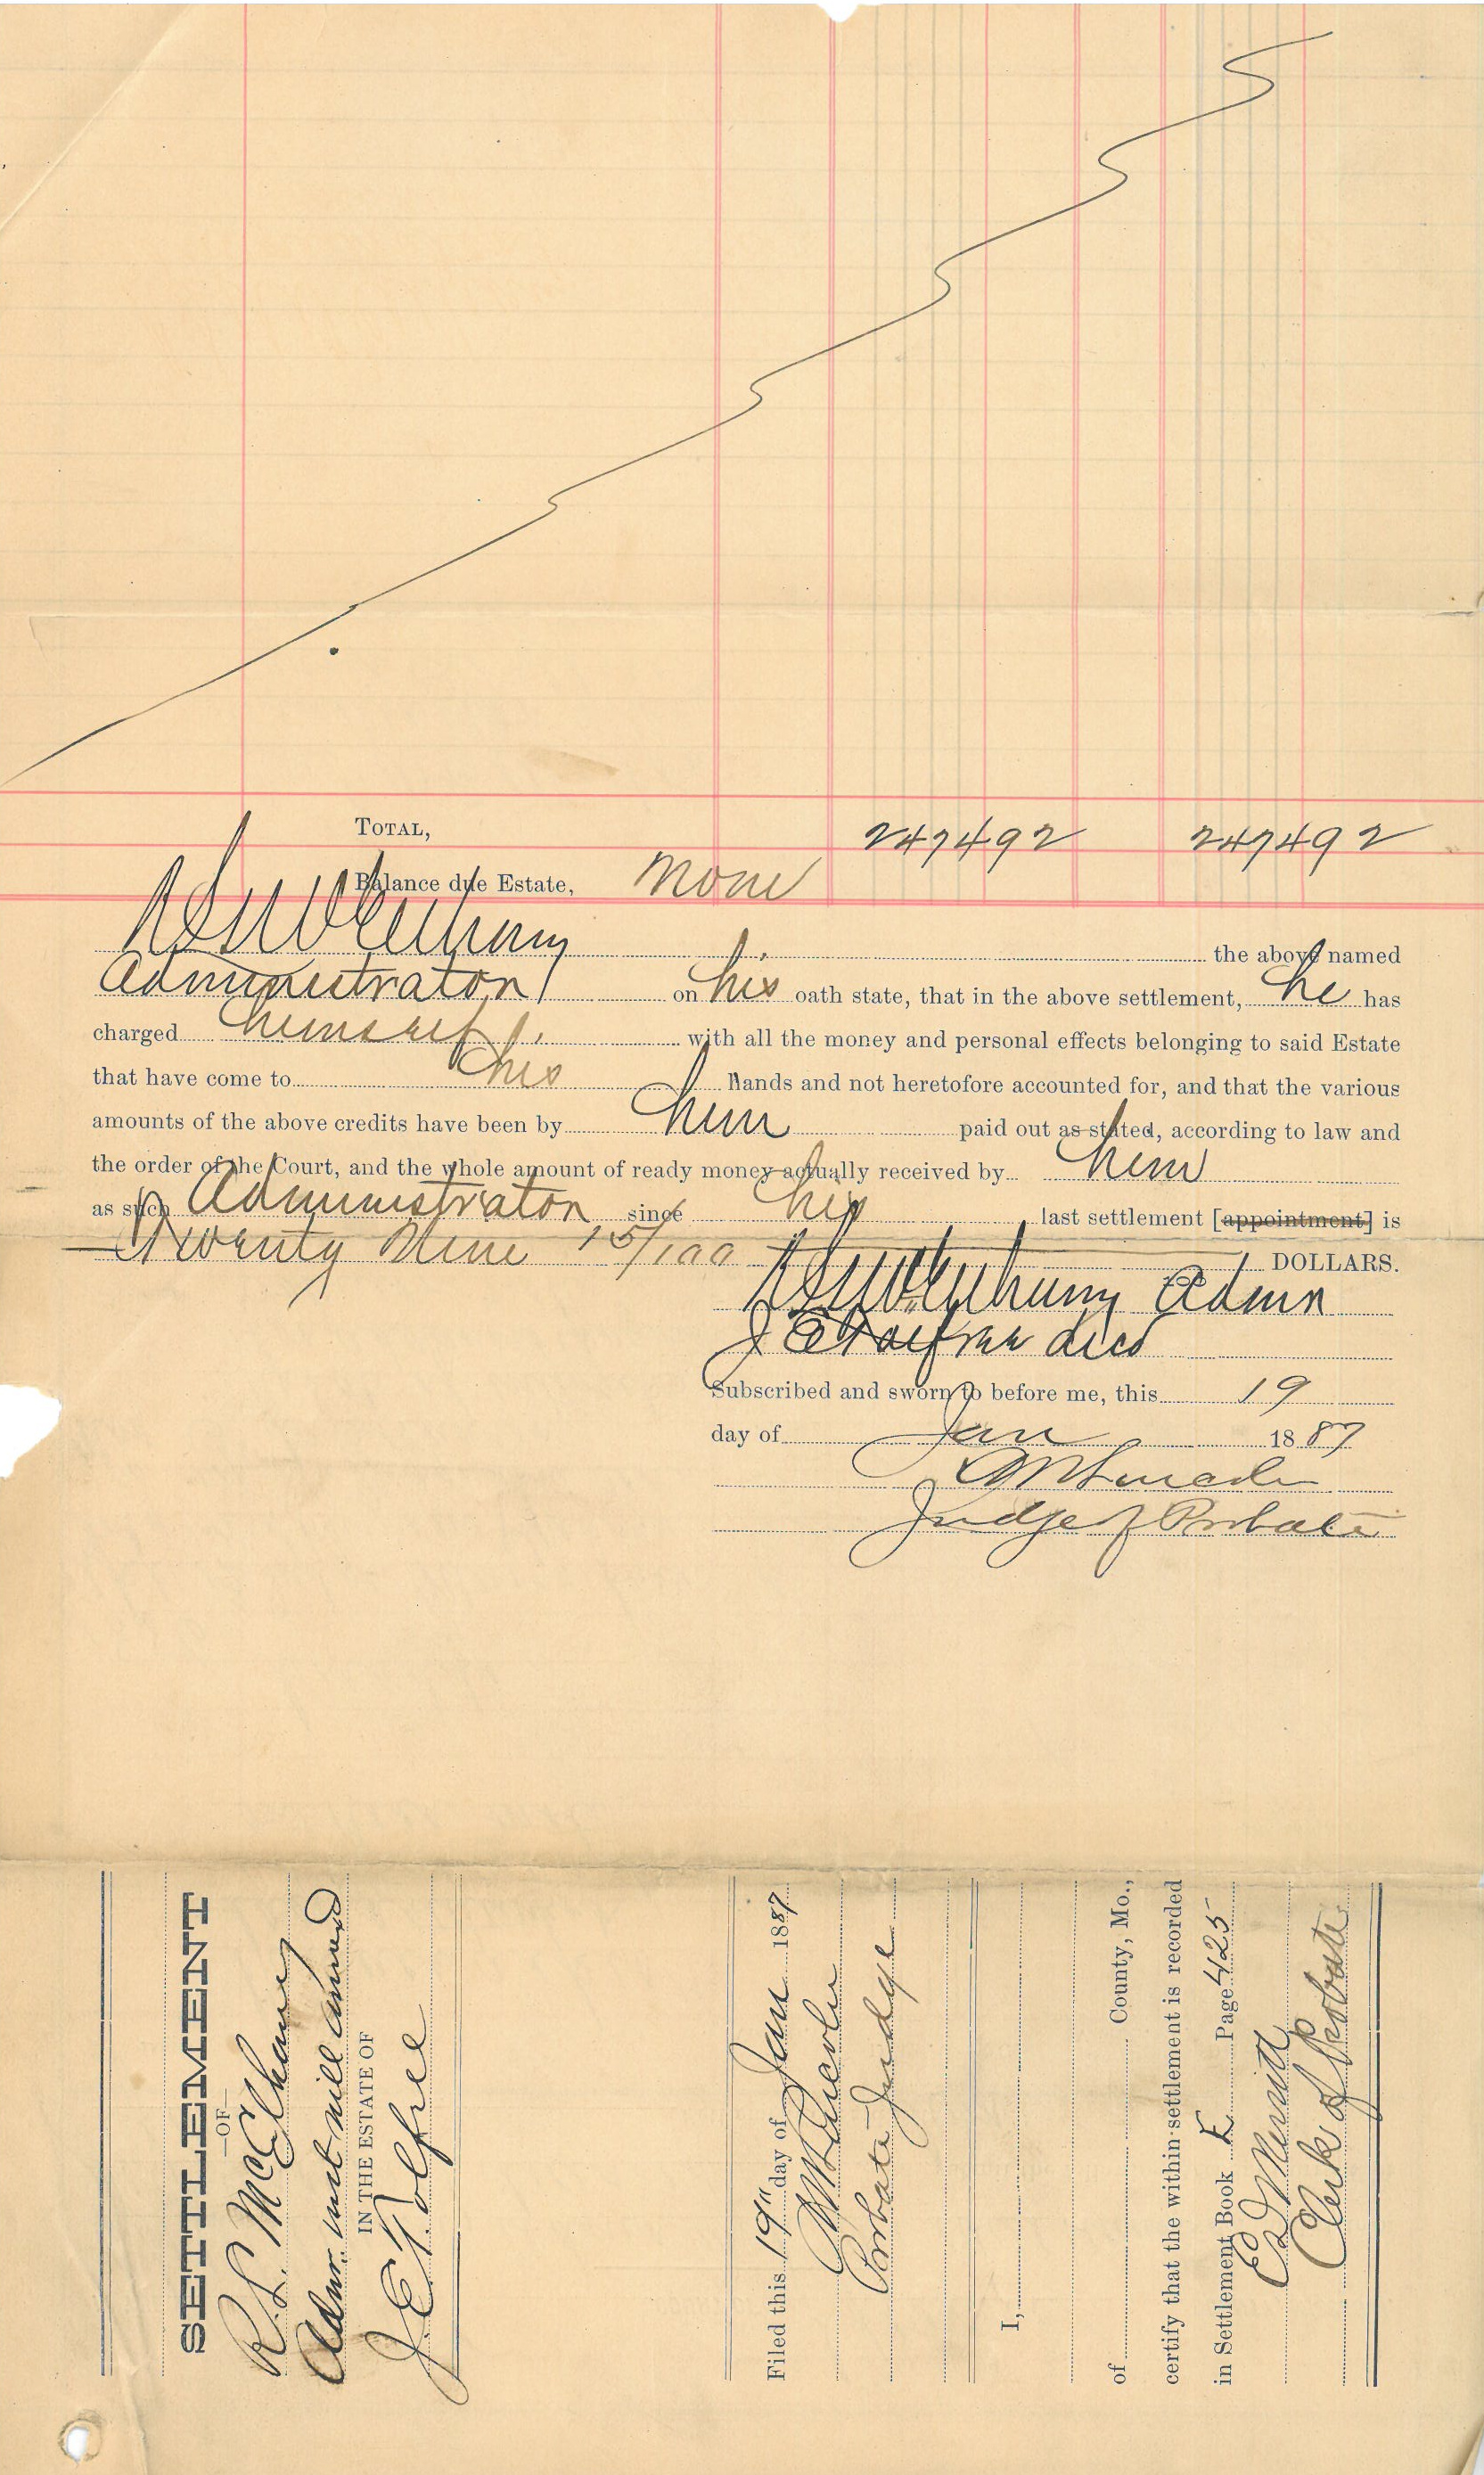 TOTAL, 247492 247492
Balance due Estate, None
RS McElhany the above named
Administrator on his oath state, that in the above settlement, he has
charged himself with all the money and personal effects belonging to said Estate
that have come to his hands and not heretofore accounted for, and that the various
amounts of the above credits have been by him paid out as stated, according to law and
the order of the Court, and the whole amount of ready money actually received by him
as such Administrator since his last settlement [appointment] is
Twenty Nine 15/100 DOLLARS.
RS McElhany Admr
J E Tolfree decd
Subscribed and sworn to before me, this 19
day of Jan 1887
Judge of Probate
SETTLEMENT
—OF—
R. S. McElhany
Admr. with will annexed
IN THE ESTATE OF
J. E. Tolfree
Filed this 19" day of Jan 1887
Probate Judge
I,
of County, Mo.,
certify that the within settlement is recorded
in Settlement Book E Page 425
Merritt
Clerk of Probate